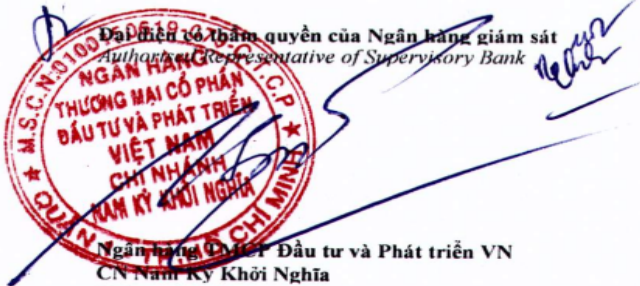 Đại diện có thẩm quyền của Ngân hàng giám sát
Authorised Representative of Supervisory Bank
NGÂN HÀNG
THƯƠNG MẠI CỔ PHẦN
ĐẦU TƯ VÀ PHÁT TRIỂN
VIỆT NAM
CHI NHÁNH
NAM KỲ KHỞI NGHĨA
Ngân hàng TMCP Đầu tư và Phát triển VN
CN Nam Kỳ Khởi Nghĩa